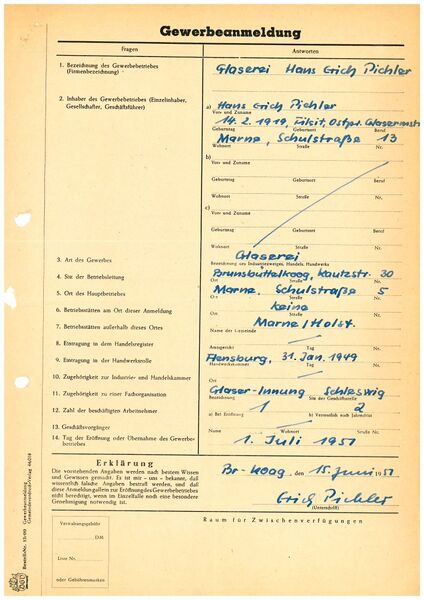 Gewerbeanmeldung
Fragen
Antworten
1. Bezeichnung des Gewerbebetriebes
(Firmenbezeichnung)
Glaserei Hans Erich Pichler
2. Inhaber des Gewerbebetriebes (Einzelinhaber,
Gesellschafter, Geschäftsführer)
a) Hans Erich Pichler
Vor- und Zuname
14. 2. 1919, Tilsit, Ostpr. Glasermstr
Geburtstag Geburtsort Beruf
Marne, Schulstraße 13
Wohnort Straße Nr.
b)
Vor- und Zuname
Geburtstag Geburtsort Beruf
Wohnort Straße Nr.
c)
Vor- und Zuname
Geburtstag Geburtsort Beruf
Wohnort Straße Nr.
3. Art des Gewerbes
Glaserei
Bezeichnung des Industriezweiges, Handels, Handwerks
4. Sitz der Betriebsleitung
Brunsbüttelkoog, Kautzstr. 30
Ort Straße Nr.
5. Ort des Hauptbetriebes
Marne, Schulstraße 5
Ort Straße Nr.
6. Betriebsstätten am Ort dieser Anmeldung
keine
7. Betriebsstätten außerhalb dieses Ortes
Marne/Holst.
Name der Gemeinde
8. Eintragung in dem Handelsregister
Amtsgericht Tag Nr.
9. Eintragung in der Handwerksrolle
Flensburg, 31. Jan. 1949
Handwerkskammer Tag Nr.
10. Zugehörigkeit zur Industrie- und Handelskammer
11. Zugehörigkeit zu einer Fachorganisation
Glaser-Innung Schleswig
Sitz der Geschäftsstelle
12. Zahl der beschäftigten Arbeitnehmer
1 2
a) Bei Eröffnung b) Vermutlich nach Jahresfrist
13. Geschäftsvorgänger
Name Wohnort Straße Nr.
14. Tag der Eröffnung oder Übernahme des Gewerbe-
betriebes
1. Juli 1951
Erklärung
Die vorstehenden Angaben werden nach bestem Wissen
und Gewissen gemacht. Es ist mir - uns - bekannt, daß
wissentlich falsche Angaben bestraft werden, und daß
diese Anmeldung allein zur Eröffnung des Gewerbebetriebes
nicht berechtigt, wenn im Einzelfalle noch eine besondere
Genehmigung notwendig ist.
Br-koog, den 15. Juni 1951
Erich Pichler
(Unterschrift)
Raum für Zwischenverfügungen
Verwaltungsgebühr
DM
Liste Nr.
oder Gebührenmarken
Bestell-Nr. 15/99 Gewerbeanmeldung